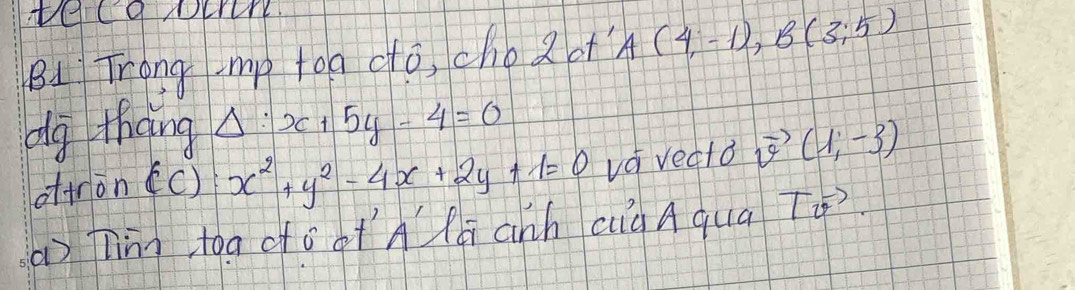 B1: Trong mp toạ độ, cho 2 đ' A (4, -1), B(3; 5)
đg thẳng Δ: x + 5y - 4 = 0
đ tròn (C): x² + y² - 4x + 2y + 1 = 0 và vectơ v⃗ (1; -3)
a) Tìm toạ độ đ' A' là ảnh của A qua Tv⃗.